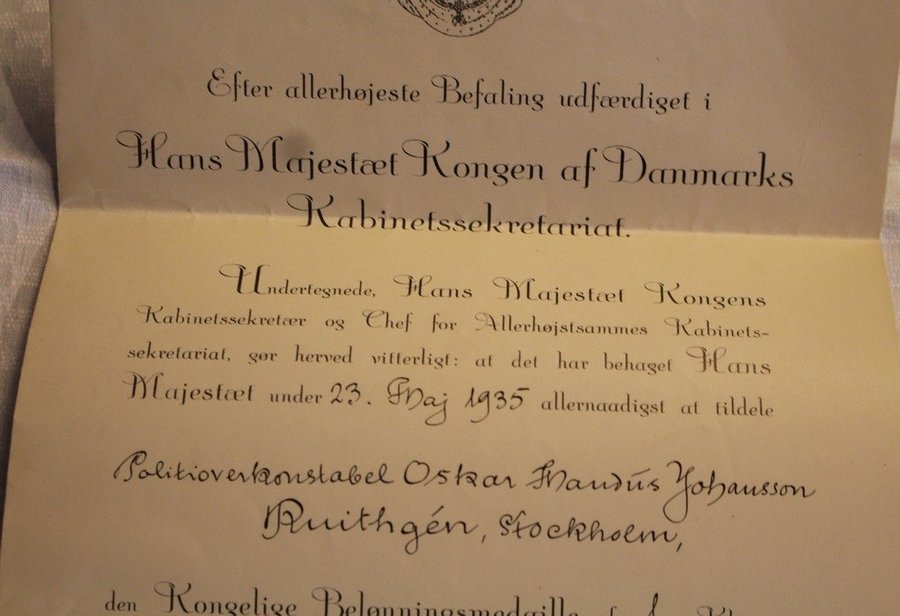 Efter allerhøjeste Befaling udfærdiget i
Hans Majestæt Kongen af Danmarks
Kabinetssekretariat.
Undertegnede, Hans Majestæt Kongens
Kabinetssekretær og Chef for Allerhøjstsammes Kabinets-
sekretariat, gør herved vitterligt: at det har behaget Hans
Majestæt under 23. Maj 1935 allernaadigst at tildele
Politioverkonstabel Oskar Mandus Johansson
Ruithgén, Stockholm,
den Kongelige Belønningsmedaille af